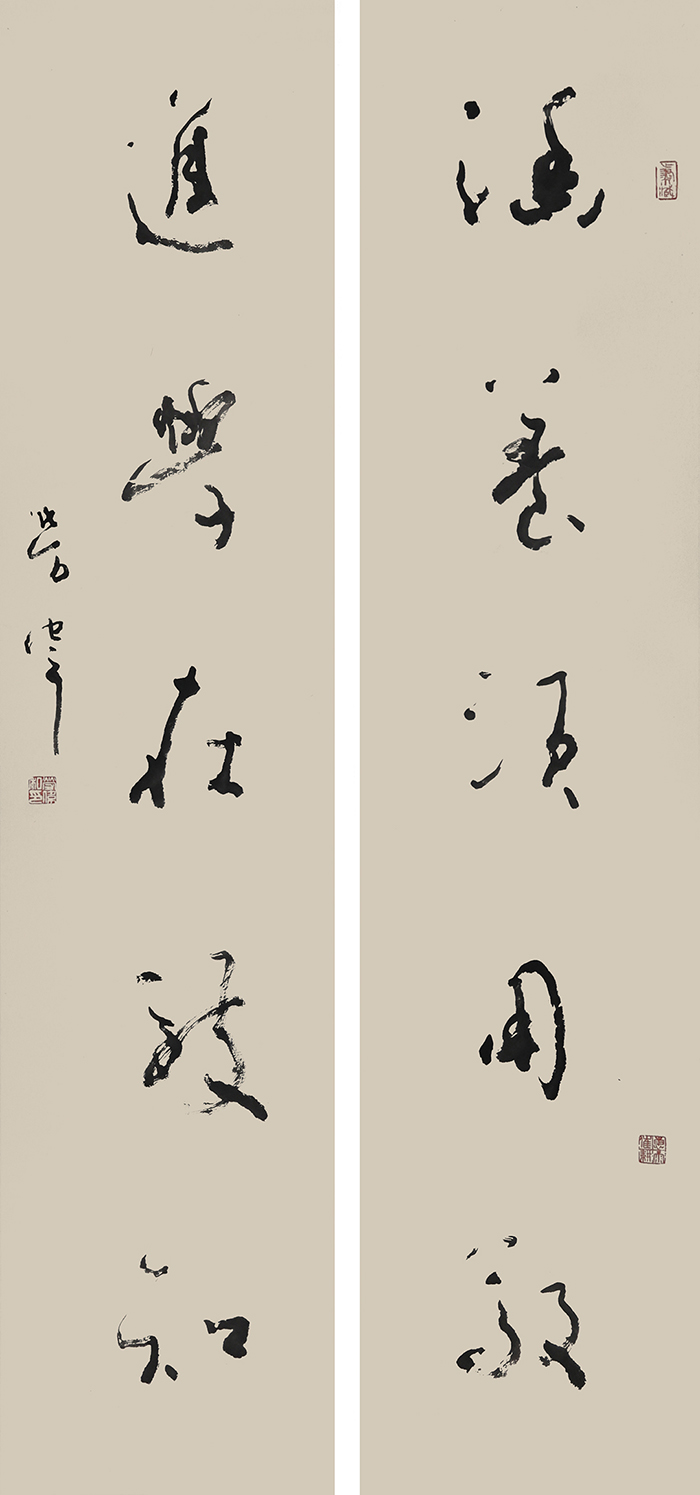 涵養須用敬
進學在致知
勞偉